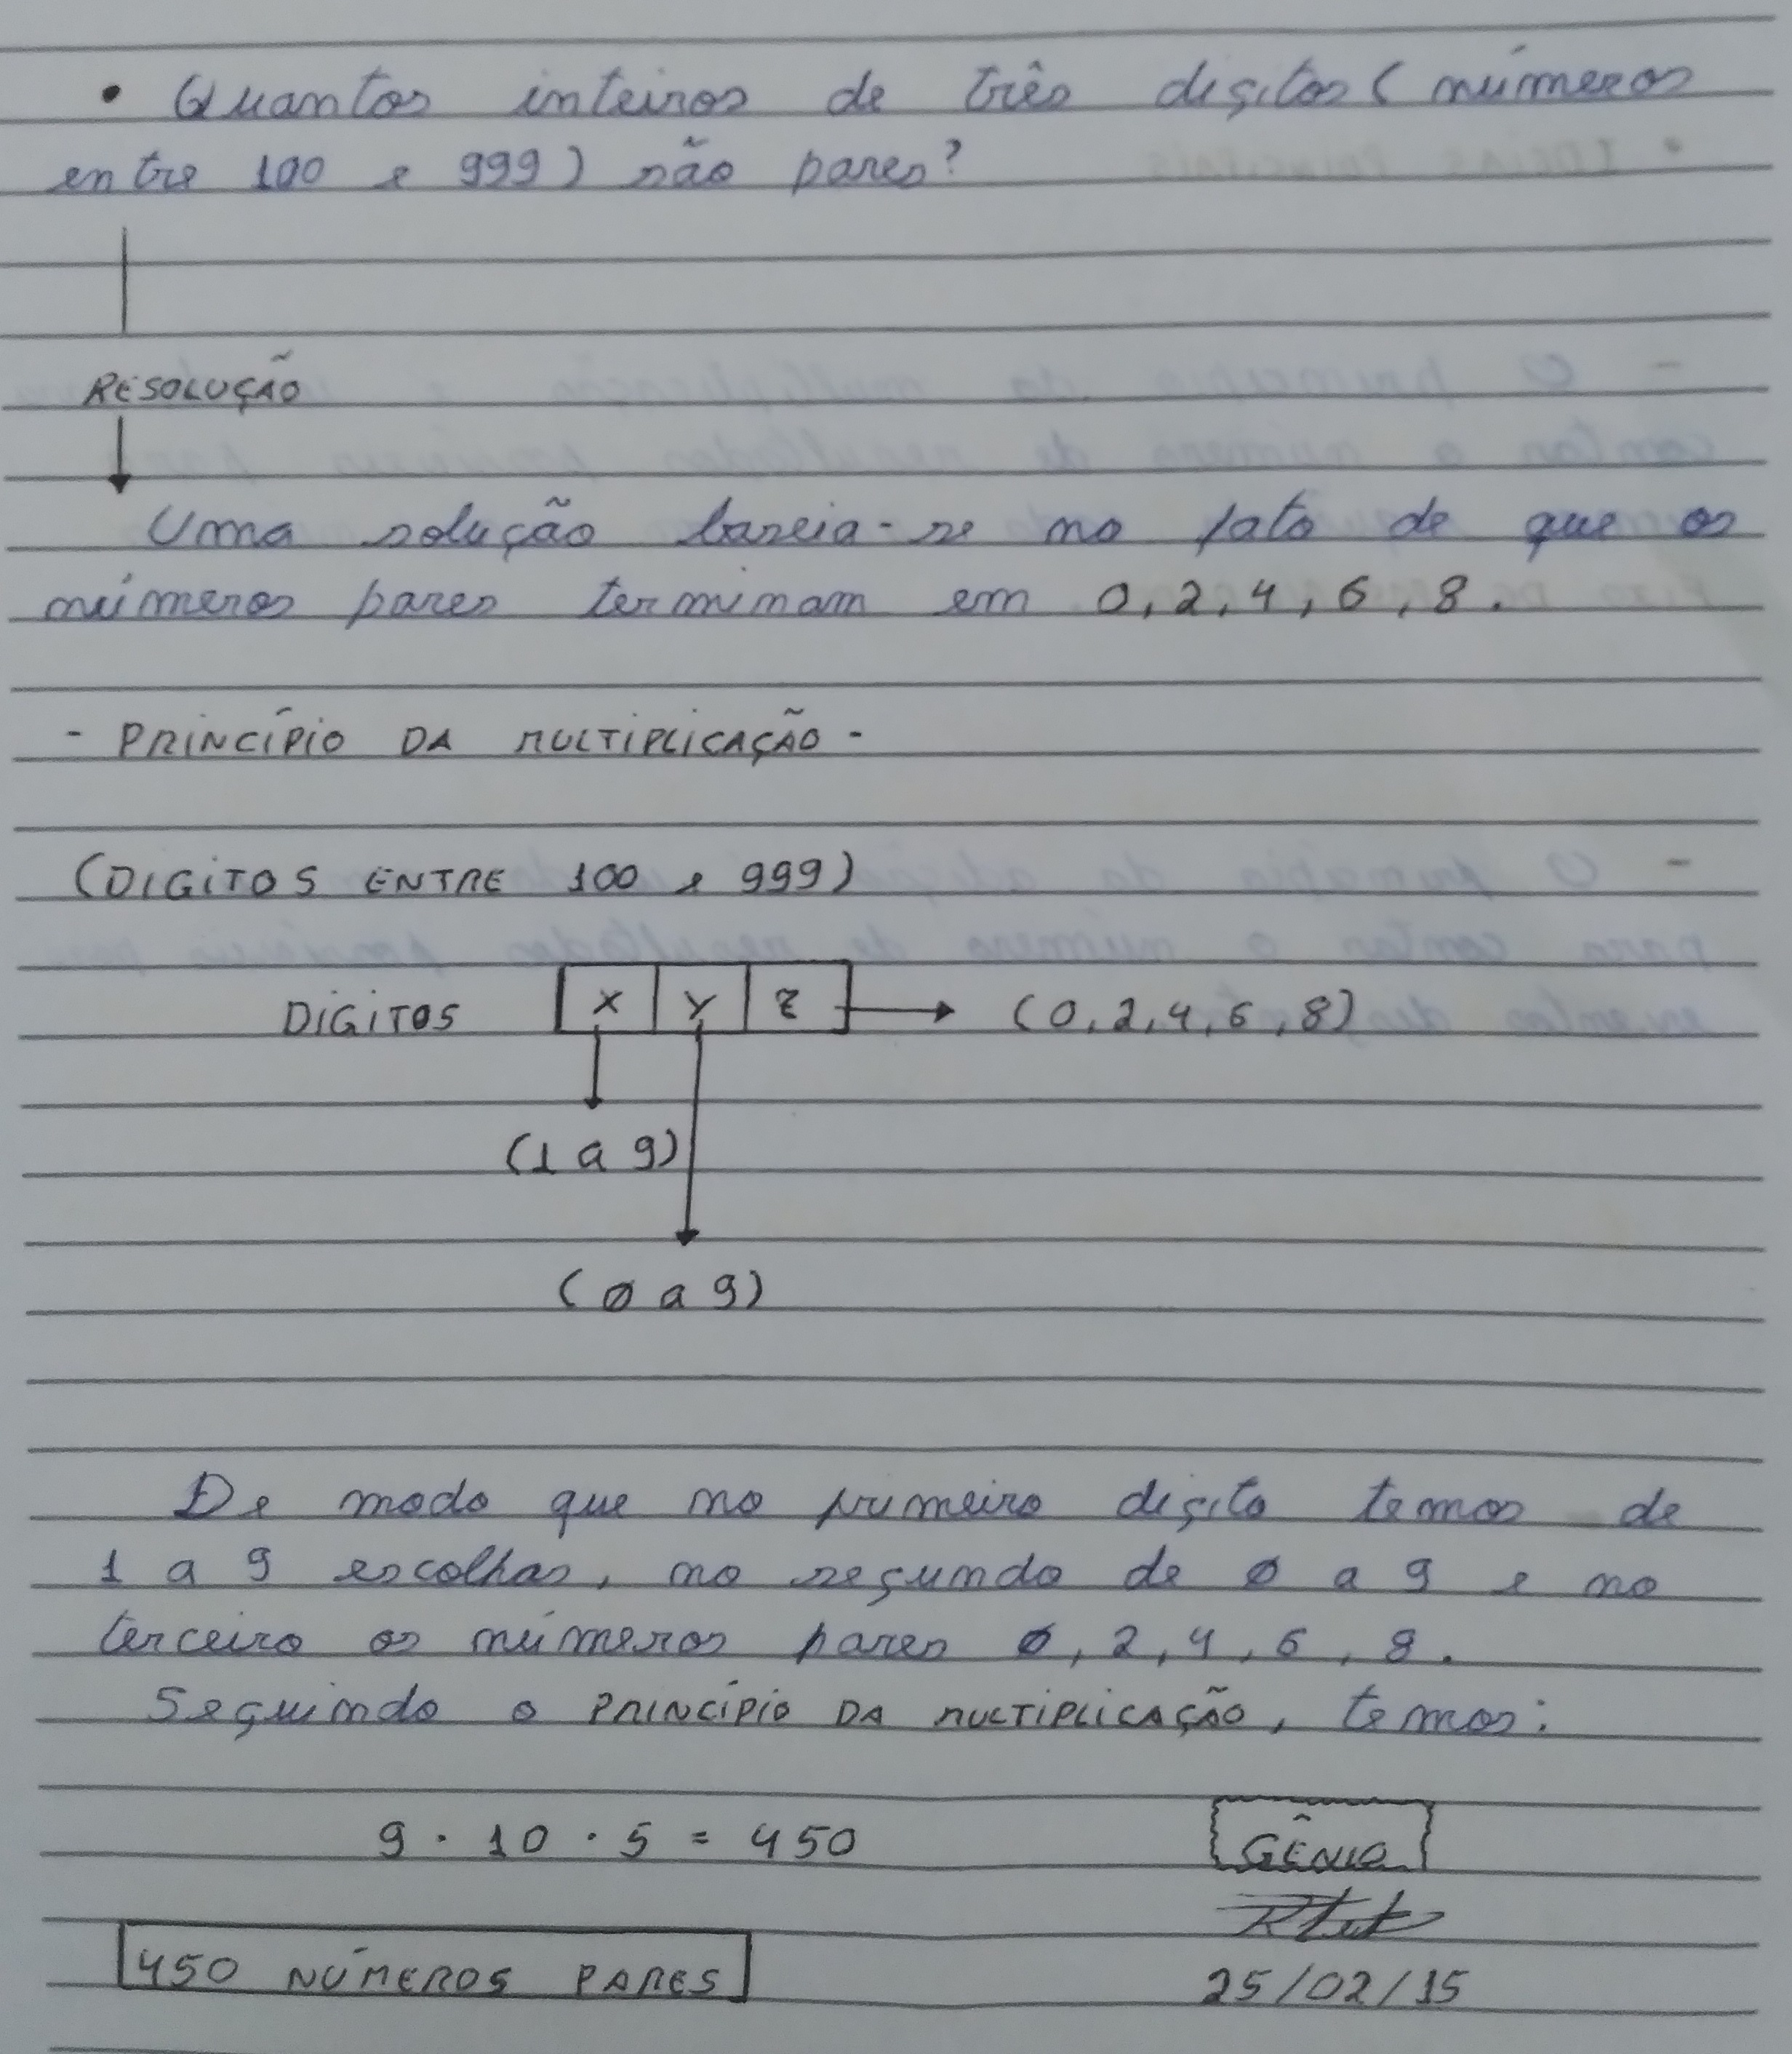 • Quantos inteiros de três digitos (números
entre 100 e 999) são pares?
RESOLUÇÃO
Uma solução baseia-se no fato de que os
números pares terminam em 0, 2, 4, 6, 8.
- PRINCÍPIO DA MULTIPLICAÇÃO -
(DIGITOS ENTRE 100 e 999)
DIGITOS X Y Z (0, 2, 4, 6, 8)
(1 a 9)
(0 a 9)
De modo que no primeiro digito temos de
1 a 9 escolhas, no segundo de 0 a 9 e no
terceiro os números pares 0, 2, 4, 6, 8.
Seguindo o PRINCÍPIO DA MULTIPLICAÇÃO, temos:
9 · 10 · 5 = 450
GÊNIO
450 NÚMEROS PARES
25/02/15